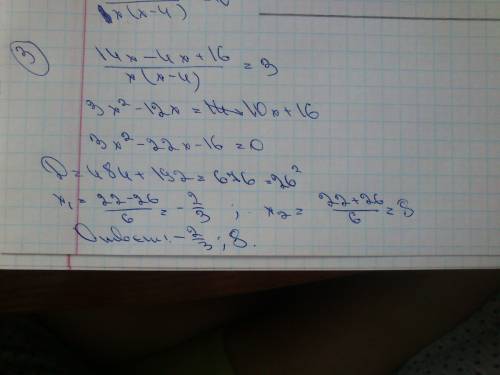 x(x-4)
3
(14x-4x+16)/(x(x-4)) = 3
3x²-12x=10x+16
3x²-22x-16=0
D=484+192=676=26²
x₁=(22-26)/6=-2/3; x₂=(22+26)/6=8
Ответ: -2/3; 8.